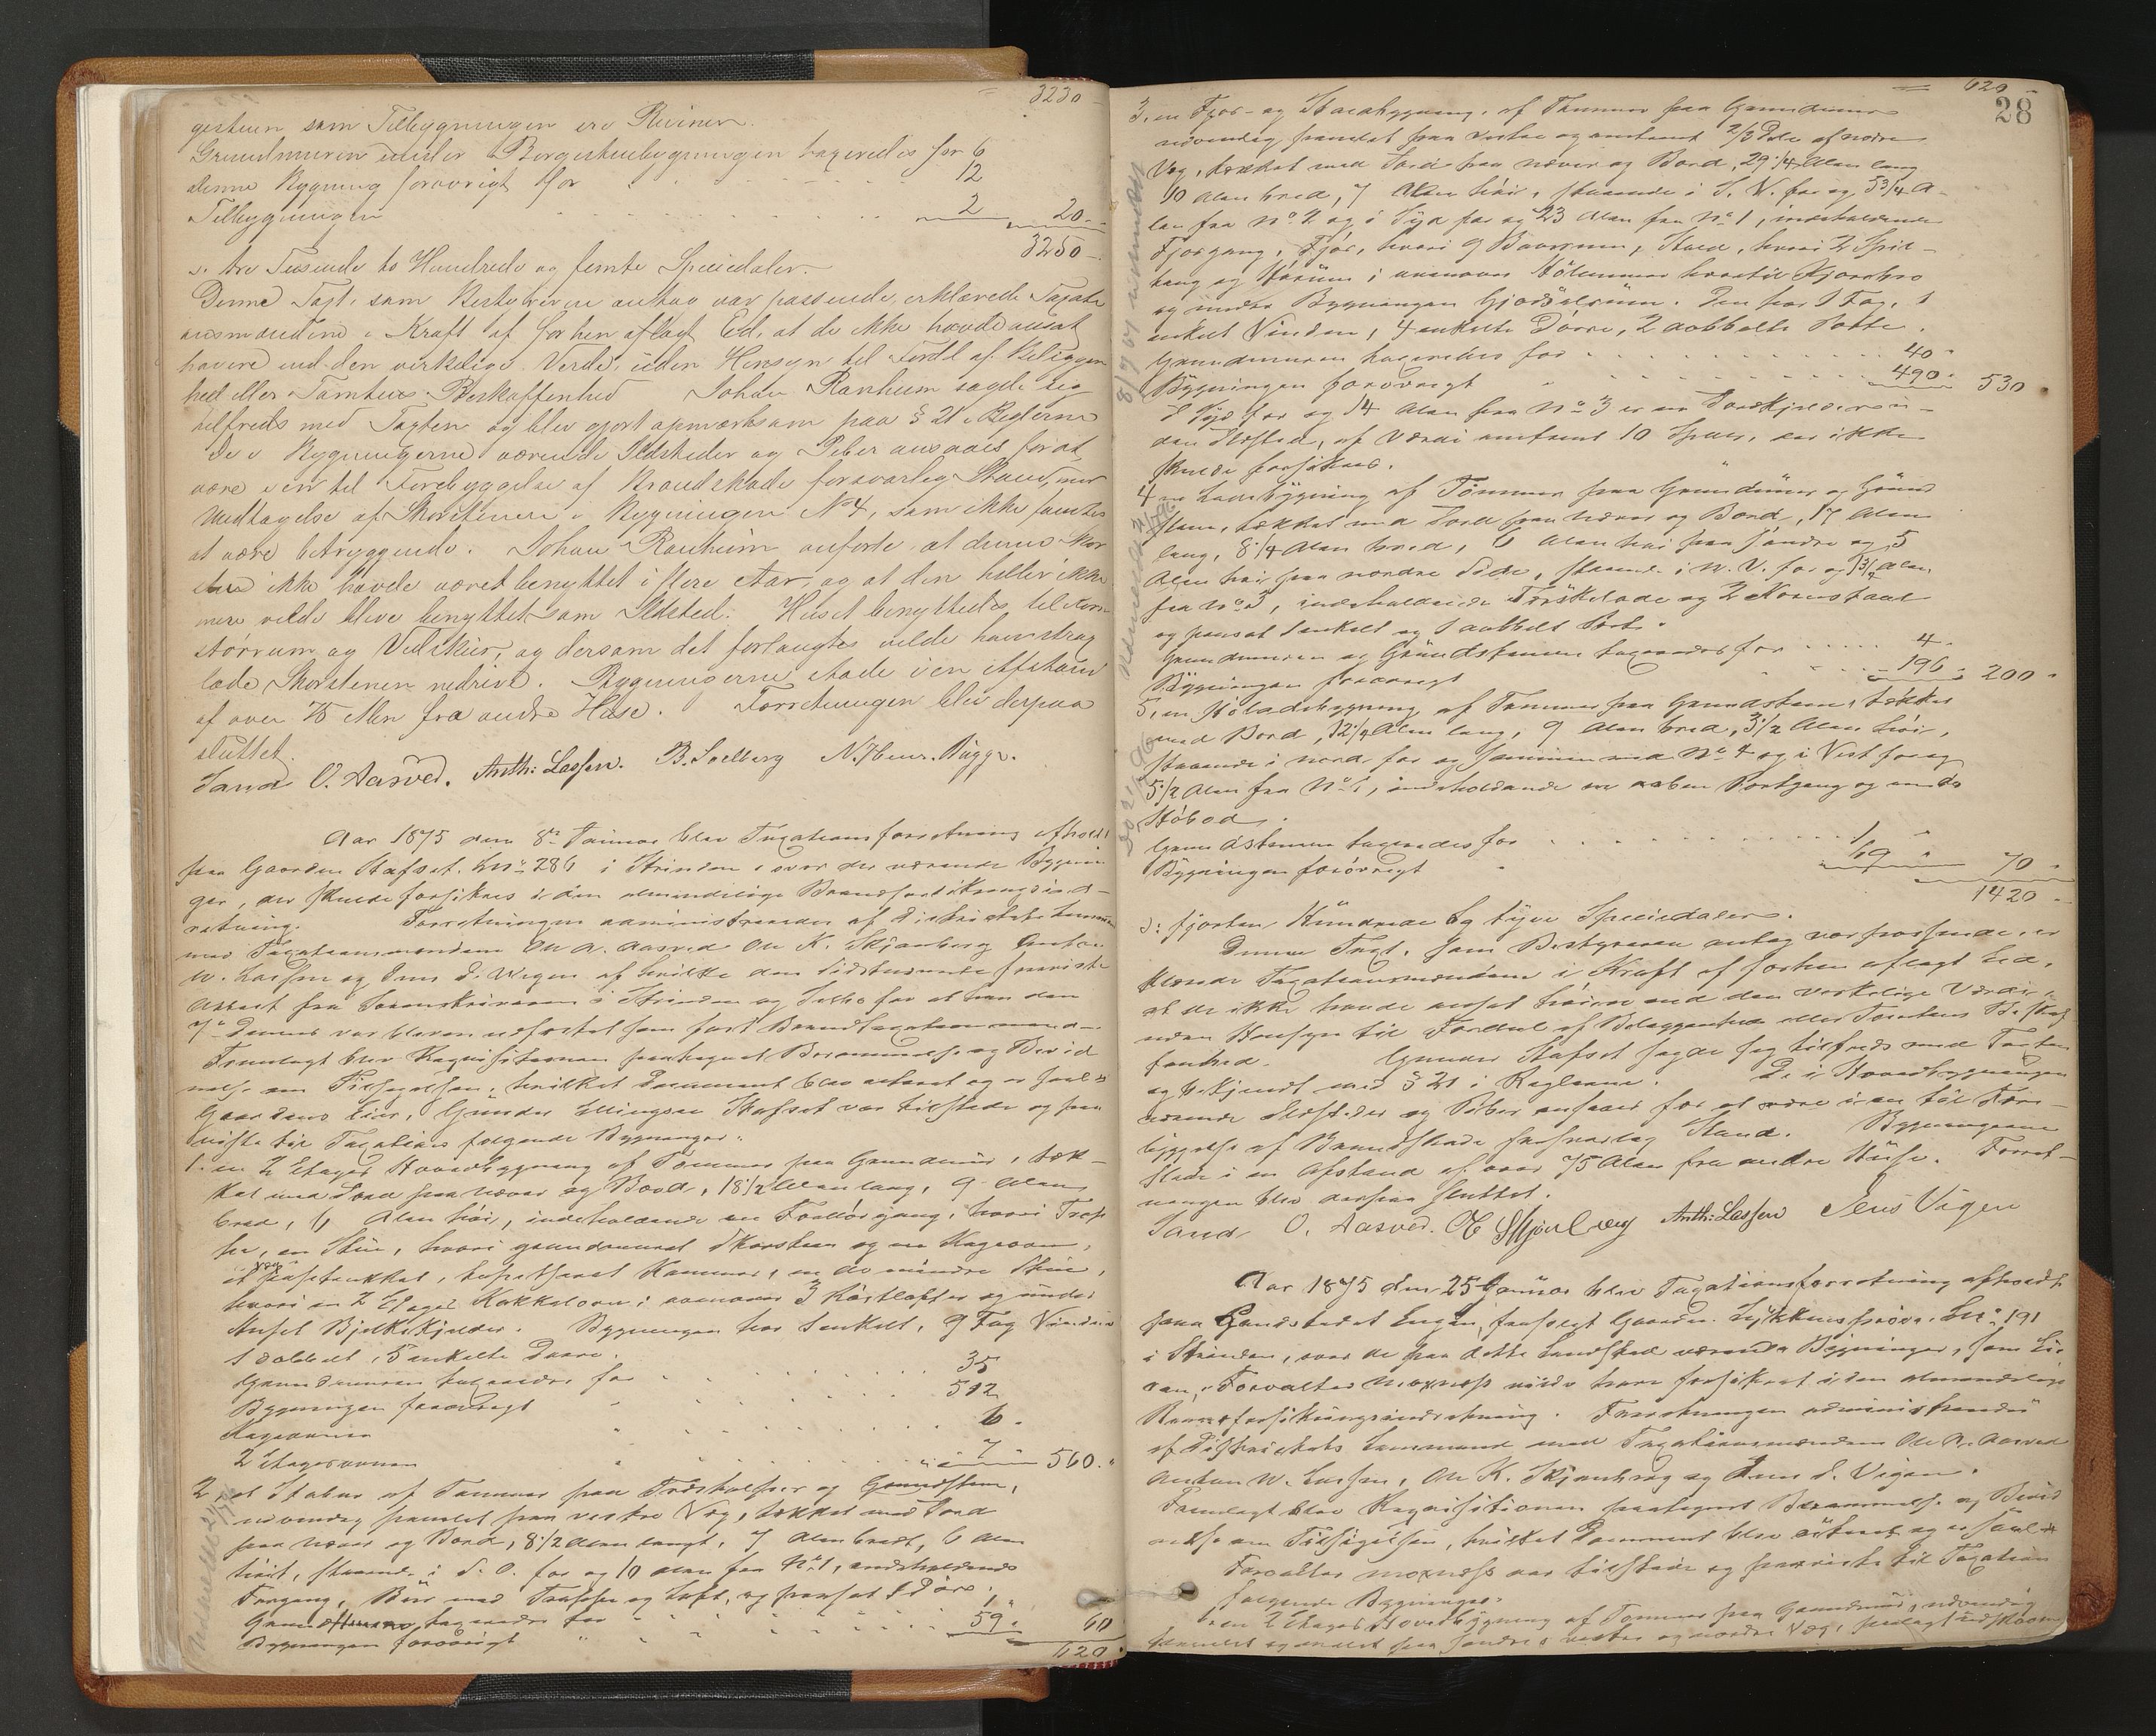 3230 -
gestuen som Tilbygningen ere Reviner.
Grundmuren under Borgestuebygningen taxeredes for 6
denne Bygning forøvrigt for 12
Tilbygningen 2 20 -
3250 -
s. tre Tusende to Hundrede og femti Speciedaler.
Denne Taxt, som Bestyreren antog var passende, erklærede Taxati
onsmændene i Kraft af forhen aflagt Ed, at de ikke havde ansat
høiere end den virkelige Værdi, uden Hensyn til Fordel af Beliggen
hed eller Tomtens Beskaffenhed Johan Ranheim sagde sig
tilfreds med Taxten og blev gjort opmærksom paa § 21 i Reglerne
De i Bygningerne værende Ildsteder og Piber ansaaes for at
være i en til Forebyggelse af Brandskade forsvarlig Stand, med
Undtagelse af Skorstenen i Bygningen No 4, som ikke fandtes
at være betryggende. Johan Ranheim anførte at denne Skor
sten ikke havde været benyttet i flere Aar, og at den heller ikke
mere vilde blive benyttet som Ildsted. Huset benyttedes til Korn
størrum og Vedskur, og dersom det forlangtes vilde han strax
lade Skorstenen nedrive. Bygningerne stode i en Afstand
af over 75 Alen fra andre Huse. Forretningen blev derpaa
sluttet.
Sand O. Aasved. Anth: Lassen. B. Solberg N. Henr. Bügge.
Aar 1875 den 8de Januar blev Taxationsforretning afholdt
paa Gaarden Stafset Lno 286 i Strinden over de værende Bygnin
ger, der skulde forsikres i den almindelige Brandforsikringsind-
retning. Forretningen administreredes af Distriktets Lensmand
med Taxationsmændene Ole A. Aasved Ole K. Skjønberg Anton
W. Lassen og Jens P. Wigen af hvilke den sidstnævnte foreviste
Attest fra Sorenskriveren i Strinden og Selbo for at han den
7de Dennes var bleven edfæstet som fast Brandtaxationsmand.
Fremlagt blev Requisitionen paategnet Berammelse og Bevid
nelse om Tilsigelsen, hvilket Document blev oplæst og er saal.
Gaardens Eier, Gunder Ellingsen Stafset var tilstede og fore
viste til Taxation følgende Bygninger:
1. en 2 Etages Hovedbygning af Tømmer paa Grundmur, tæk-
ket med Torv paa Næver og Bord, 18 1/2 Alen lang, 9 Alen
bred, 6 Alen høi, indeholdende en Forstøgang, hvori Trap
per, en Stue, hvori grundmuret Skorsten og en Kageovn,
et tapetseret Kammer, en do mindre Stue,
hvori en 2 Etages Kakkelovn; ovenover 3 Kostlofter og under
Huset Bjelkekjelder. Bygningen har 1 enkelt, 9 Fag Vinduer
1 dobbelt, 5 enkelte Døre.
Grundmuren taxeredes for 35
Bygningen forøvrigt 512
Kageovnen 6 -
2 Etagesovnen 7 560. -
2 et Stabur af Tømmer paa Træstolper og Grundsten,
udvendig panelet paa vestre Væg, tækket med Torv
paa Næver og Bord, 8 1/2 Alen langt, 7 Alen bredt, 6 Alen
høit, staaende i S. O. for og 10 Alen fra No 1, indeholdende
Forgang, Bur med Trappe og Loft, og forsat 1 Dør.
Grundstenene taxeredes for 1 -
Bygningen forøvrigt 59 - 60
620
620 -
28
3, en Fjøs- og Staldbygning, af Tømmer paa Grundmur
udvendig panelet paa vestre og omtrent 2/3 Dele af nordre
Væg, tækket med Torv paa Næver og Bord, 29 1/4 Alen lang
10 Alen bred, 7 Alen høi, staaende i S. V. for og 5 3/4 A-
len fra No 2 og i Syd for og 23 Alen fra No 1, indeholdende
Fjosgang, Fjøs, hvori 9 Baasrum, Stald, hvori 2 Spil-
taug og Hørum; ovenover Hølemmer hvortil Kjørebro
og under Bygningen Gjødselrum. Den har 1 Fag, 1
enkelt Vindue, 4 enkelte Dørre, 2 dobbelte Porte.
Grundmuren taxeredes for 40 -
Bygningen forøvrigt 490 - 530
I Syd for og 14 Alen fra No 3 er en Jordkjelder u-
den Ildsted, af Værdi omtrent 10 Spdlr, der ikke
skulde forsikres.
4 en Ladebygning af Tømmer paa Grundmur og Grund
sten, tækket med Torv paa Næver og Bord, 17 Alen
lang, 8 1/4 Alen bred, 6 Alen høi paa søndre og 5
Alen høi paa nordre Side, staaende i N. V. for og 13 1/2 Alen
fra No 3, indeholdende Tærskelade og 2 Kornstaal
og forsat 1 enkelt og 1 dobbelt Port.
Grundmuren og Grundstenene taxeredes for 4 -
Bygningen forøvrigt 196 - 200 -
5, en Høladebygning af Tømmer paa Grundsten, tækket
med Bord, 12 1/4 Alen lang, 9 Alen bred, 3 1/2 Alen høi,
staaende i Nord for og sammen med No 4 og i Vest for og
5 1/2 Alen fra No 1, indeholdende en aaben Portgang og en do
Høbod.
Grundstenene taxeredes for 1 -
Bygningen forøvrigt 69 - 70 -
1420 -
s: fjorten Hundrede og tyve Speciedaler.
Denne Taxt, som Bestyreren antog var passende, er
klærede Taxationsmændene i Kraft af forhen aflagt Ed,
at de ikke havde ansat høiere end den virkelige Værdi,
uden Hensyn til Fordel af Beliggenhed eller Tomtens Beskaf
fenhed. Gunder Stafset sagde sig tilfreds med Taxten
og bekjendt med § 21 i Reglerne. De i Hovedbygningen
værende Ildsteder og Piber ansaaes for at være i en til Fore-
byggelse af Brandskade forsvarlig Stand. Bygningerne
stode i en Afstand af over 75 Alen fra andre Huse. Forret-
ningen blev derpaa sluttet.
Sand O. Aasved. O K Skjønberg Anth: Lassen Jens Vigen
Aar 1875 den 25 Januar blev Taxationsforretning afholdt
paa Landstedet Engen, fraskilt Gaarden Lykkens prøve, Lno 191
i Strinden, over de paa dette Landsted værende Bygninger, som Ei-
eren, Forvalter Moxness vilde have forsikret i den almindelige
Brandforsikringsindretning. Forretningen administreredes
af Distriktets Lensmand med Taxationsmændene Ole A. Aasved
Anton W. Lassen, Ole K. Skjønberg og Jens P. Vigen.
Fremlagt blev Requisitionen paategnet Berammelse og Bevid
nelse om Tilsigelsen, hvilket Document blev oplæst og er saal.
Forvalter Moxness var tilstede og foreviste til Taxation
følgende Bygninger:
en 2 Etages Hovedbygning af Tømmer paa Grundmur, udvendig
panelet og malet paa søndre, vestre og nordre Væg,